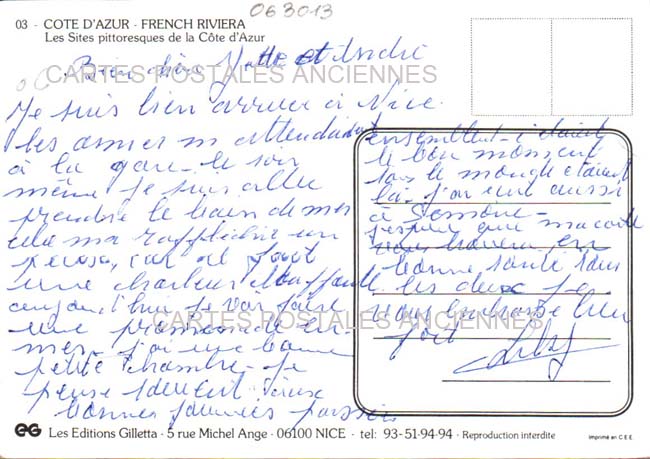 063013
03 - COTE D'AZUR - FRENCH RIVIERA
Les Sites pittoresques de la Côte d'Azur
Bien chère et André
CARTES POSTALES ANCIENNES
Je suis bien arrivée à Nice.
les amies m attendaient
à la gare - le soir
même je suis allée
prendre le bain de mer
cela ma un
peu car il fait
une chaleur étouffante
aujourd'hui je vais faire
une promenade en
mer - j'ai une bonne
petite chambre - je
pense souvent
bonnes journées passées
ensemble - c'était
le bon moment
tout le monde était
là - j'ai aussi
à Simone -
j'espère que ma carte
vous trouvera en
bonne santé tous
les deux je
vous embrasse bien
fort
CARTES POSTALES ANCIENNES
EG Les Editions Gilletta - 5 rue Michel Ange - 06100 NICE - tel: 93-51-94-94 - Reproduction interdite
Imprimé en C.E.E.